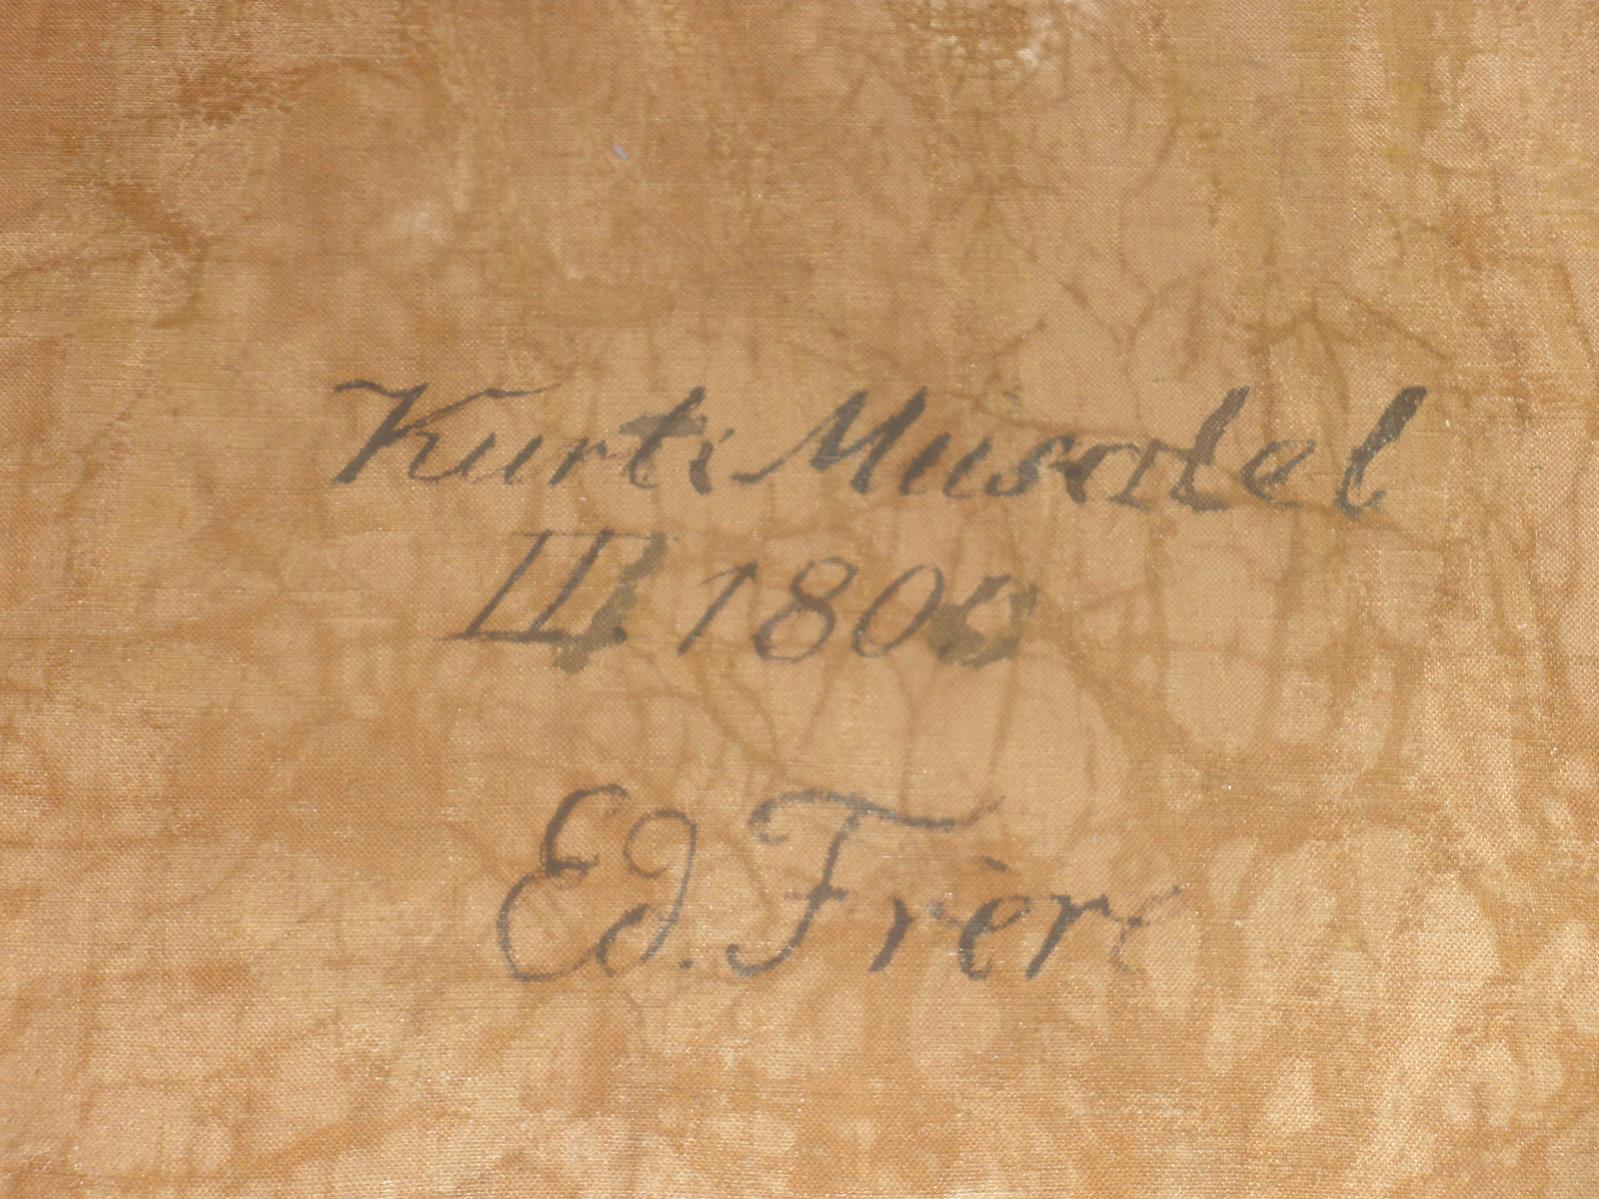 Kurti Musatel
III. 180
Ed. Frère